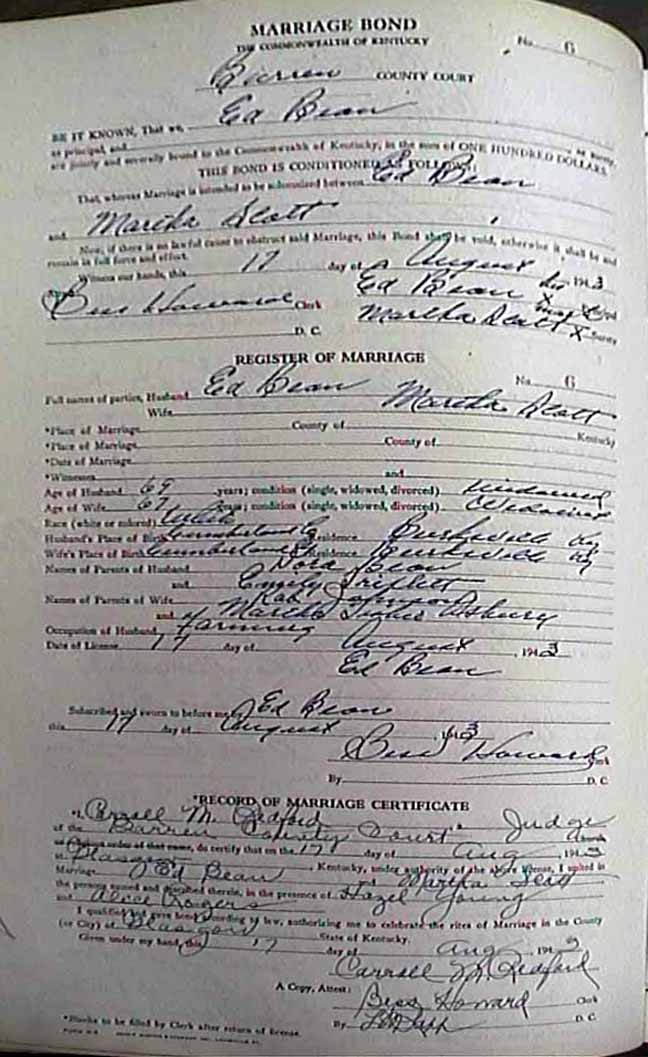 MARRIAGE BOND
THE COMMONWEALTH OF KENTUCKY
No. 6
Barren COUNTY COURT
BE IT KNOWN, That we, Ed Bean
as principal, and as surety,
are jointly and severally bound to the Commonwealth of Kentucky, in the sum of ONE HUNDRED DOLLARS.
THIS BOND IS CONDITIONED AS FOLLOWS:
That, whereas Marriage is intended to be solemnized between Ed Bean
and Martha Scott
Now, if there is no lawful cause to obstruct said Marriage, this Bond shall be void, otherwise it shall be and
remain in full force and effect.
Witness our hands, this 17 day of August 1943
Ed Bean X his mark
Bess Howard Clerk Martha Scott X Surety
D. C.
REGISTER OF MARRIAGE
No. 6
Full names of parties, Husband Ed Bean
Wife Martha Scott
*Place of Marriage County of Kentucky
*Place of Marriage County of
*Date of Marriage
*Witnesses and
Age of Husband 69 years; condition (single, widowed, divorced) Widowed
Age of Wife 67 years; condition (single, widowed, divorced) Widowed
Race (white or colored) white
Husband's Place of Birth Cumberland Co Residence Burkesville Ky
Wife's Place of Birth Cumberland Co Residence Burkesville Ky
Names of Parents of Husband Bean
and Emily Triplett
Names of Parents of Wife Johnson
and Martha Asbury
Occupation of Husband Farming
Date of License 17 day of August, 1943
Ed Bean
Subscribed and sworn to before me, Ed Bean
this 17 day of August, 1943
Bess Howard Clerk
By D. C.
*RECORD OF MARRIAGE CERTIFICATE
*I, Carroll M. Redford Judge
of the Barren County Court Church
or religious order of that name, do certify that on the 17 day of Aug, 1943
at Glasgow, Kentucky, under authority of the above license, I united in
Marriage Ed Bean and Martha Scott
the persons named and described therein, in the presence of Hazel Young
and Alice Rogers
I qualified and gave bond according to law, authorizing me to celebrate the rites of Marriage in the County
(or City) of Glasgow State of Kentucky.
Given under my hand, this 17 day of Aug 1943
Carroll M. Redford
A Copy, Attest: Bess Howard Clerk
By D. C.
*Blanks to be filled by Clerk after return of license.